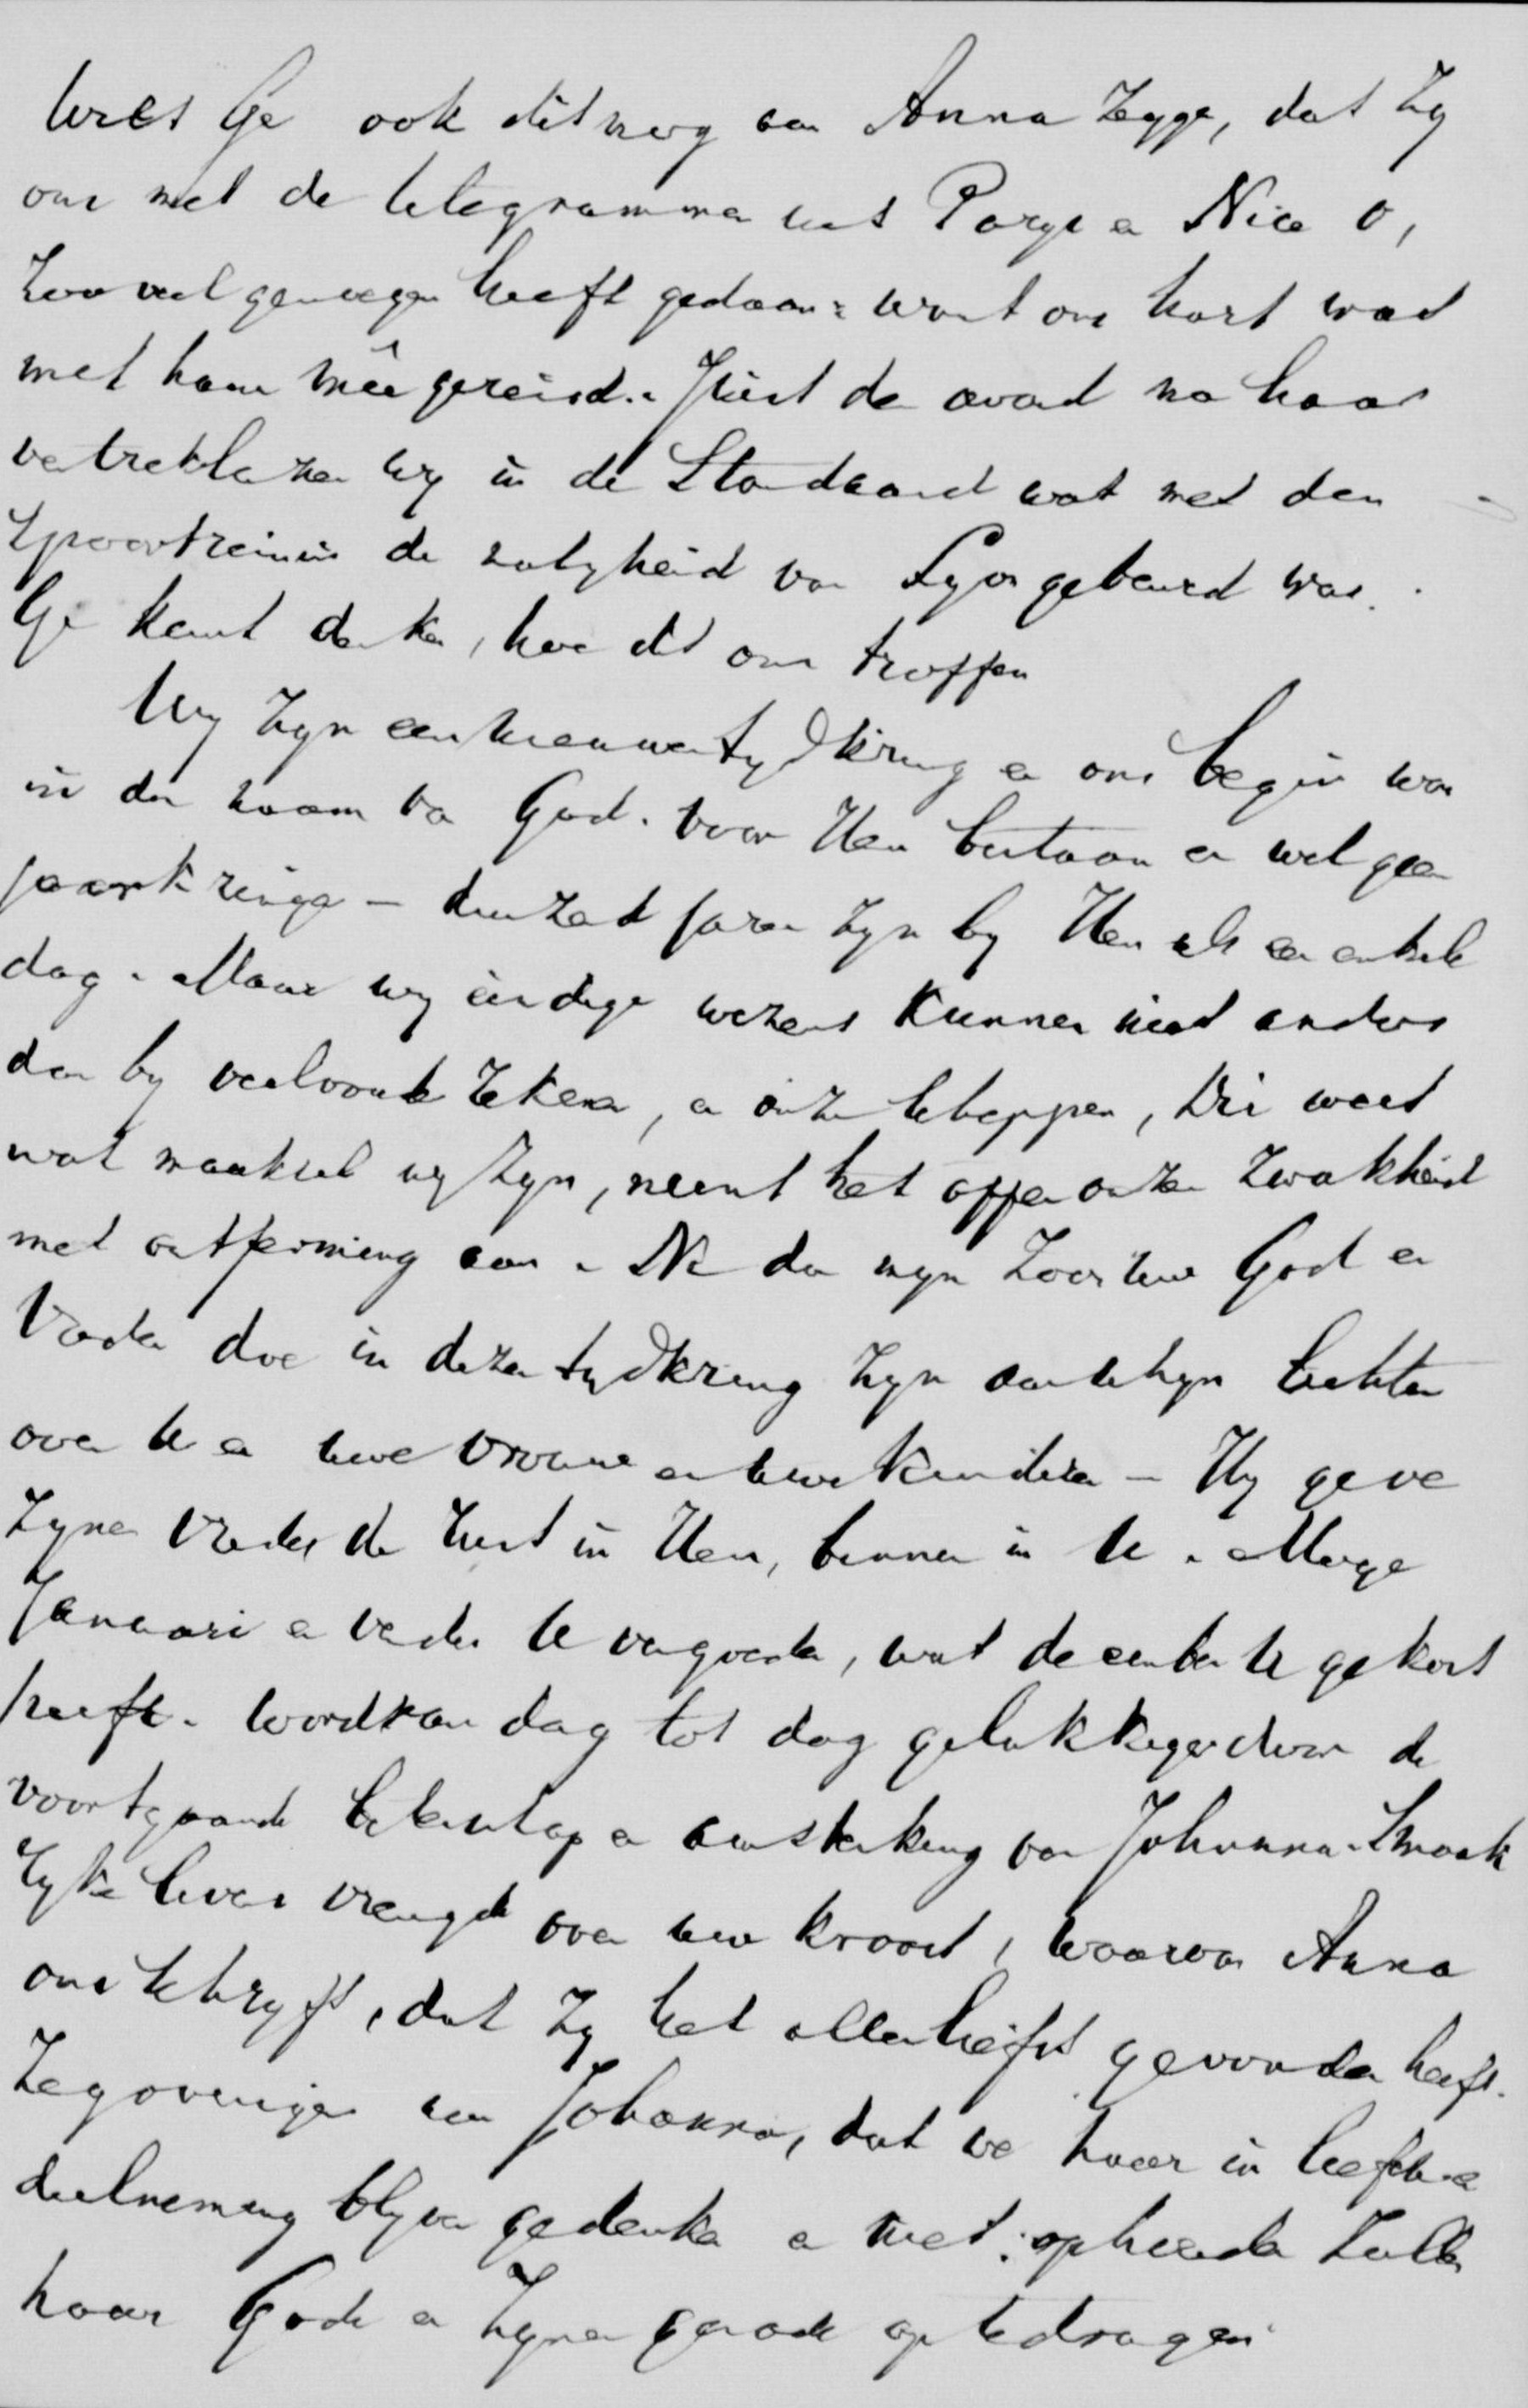 Wilt Ge ook dit nog aan Anna zeggen, dat zy
ons met de telegrammen uit Parys en Nice o,
zoo veel genoegen heeft gedaan: want ons hart was
met haar mêe gereisd. Juist den avond na haar
vertrek lazen wy in de Standaard wat met den
spoortrein in de nabyheid van Lyon gebeurd was.
Ge kunt denken, hoe dit ons troffen
Wy zyn een nieuwen tydkring en ons begin was
in den naam van God. Voor Hem bestaan er wel geen
jaarkringen – duizend jaren zyn by Hem als een enkele
dag. Maar wy eindige wezens kunnen niet anders
dan by verloop te rekenen, en onze Schepper, Die weet
wat maaksel wy zyn, neemt het offer onzer zwakheid
met ontferming aan. Nu dan myn Zoon Uw God en
Vader doe in dezen tydkring Zyn aanschyn lichten
over U en uwe vrouw en uwe kinderen – Hy geve
Zynen vrede, de rust in Hem, binnen in U. Moge
Januari en verder U vergoeden, wat december U gekort
heeft. Wordt van dag tot dag gelukkiger door de
voortgaande beterschap en aansterking van Johanna. Smaak
ryke levensvreugde over uw kroost, waarvan Anna
ons schryft, dat zy het allerliefst gevonden heeft.
Zeg overigens aan Johanna, dat we haar in liefde en
deelneming blyven gedenken en niet ophouden zullen
haar Gode en Zyner genade op te dragen